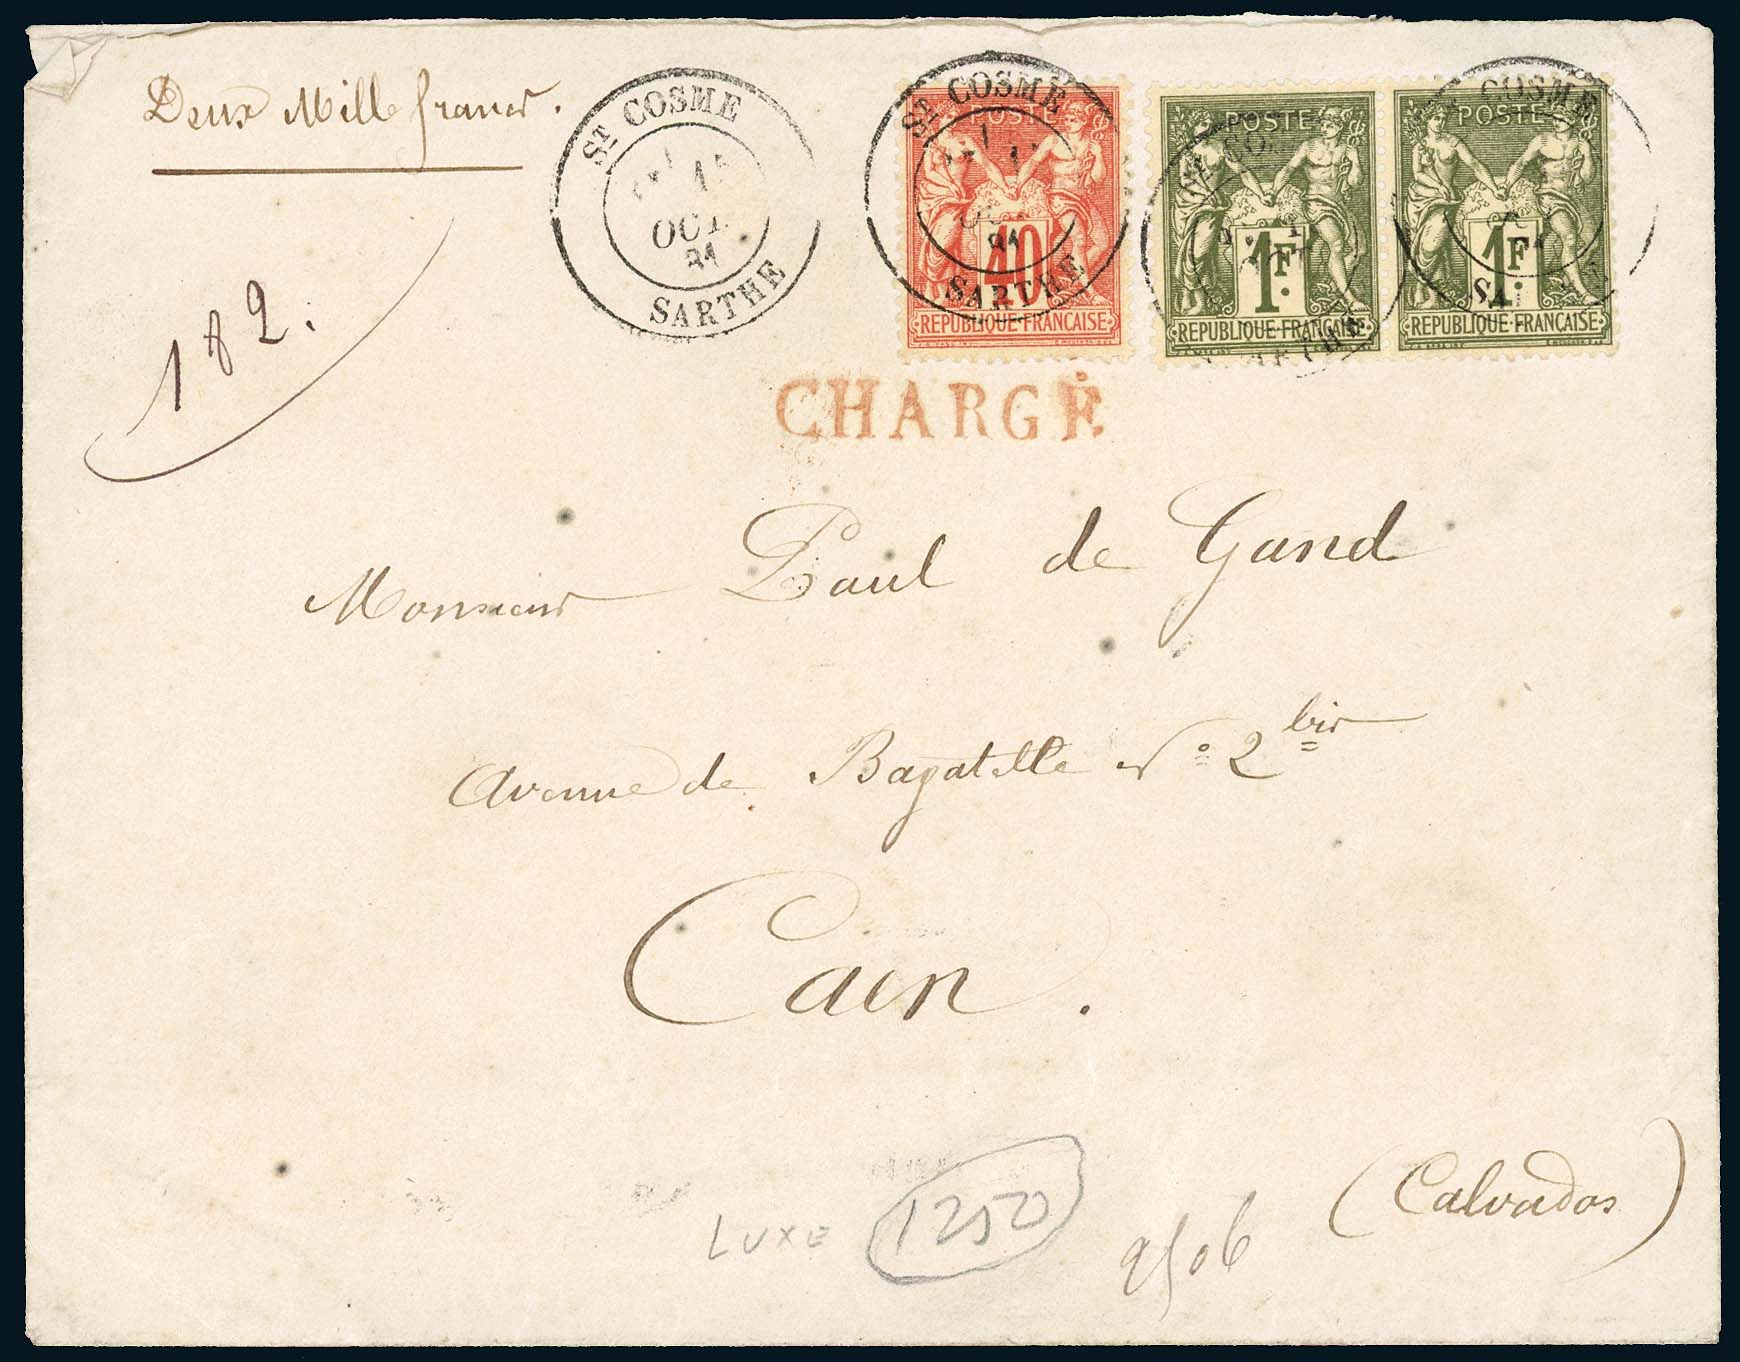 Deux Mille francs.
St COSME
OCT.
81
SARTHE
St COSME
POSTE
40
81
SARTHE
REPUBLIQUE·FRANÇAISE
POSTE
1F.
REPUBLIQUE·FRANÇAISE
COSME
POSTE
1F.
REPUBLIQUE·FRANÇAISE
182.
CHARGÉ.
Monsieur Paul de Gand
Avenue de Bagatelle No 2 bis
Caen.
(Calvados)
LUXE 1250
9506